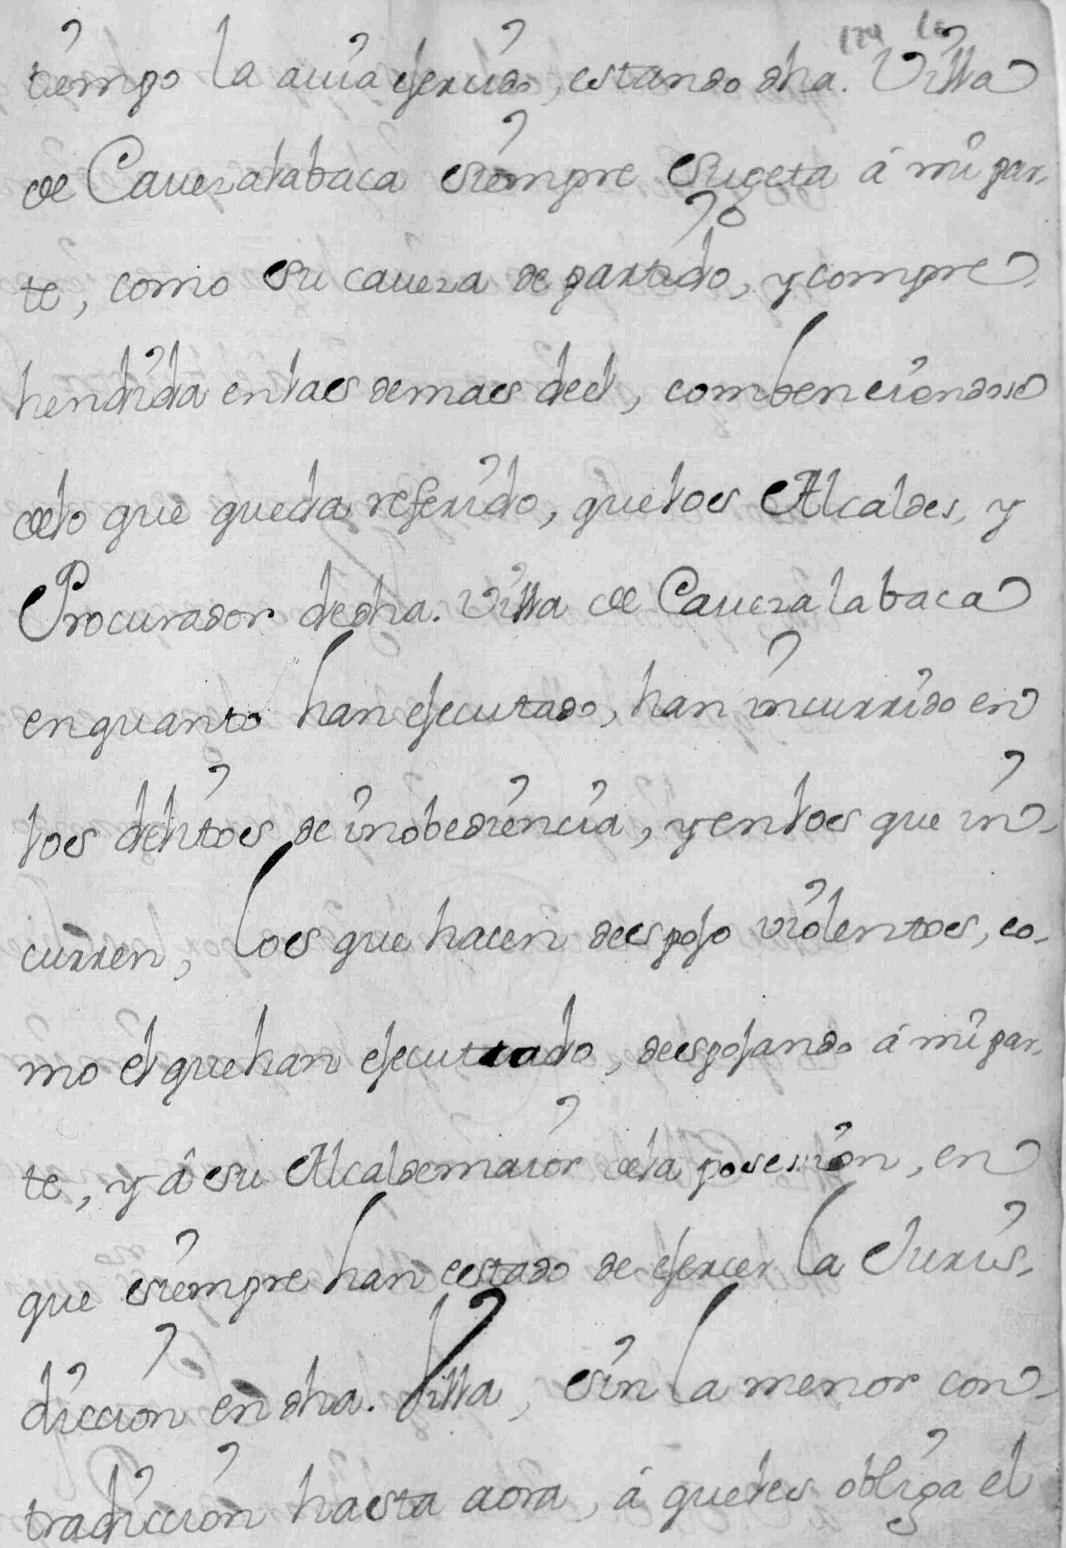 tiempo la auia ejercido, estando dha. Villa
de Cauezalabaca siempre sugeta á mi par-
te, como su caueza de partido, y compre-
hendida en las demas deel, combenciendose
delo que queda referido, que los Alcaldes, y
Procurador de dha. Villa de Cauezalabaca
en quanto han ejecutado, han incurrido en
los delitos de inobediencia, y en los que in-
curren, los que hacen despojo violentos, co-
mo el que han ejecuttado, despojando á mi par-
te, y á su Alcaldemaior dela posesion, en
que siempre han estado de ejercer la Juris-
diccion en dha. Villa, sin la menor con-
tradiccion hasta aora, á que les obliga el